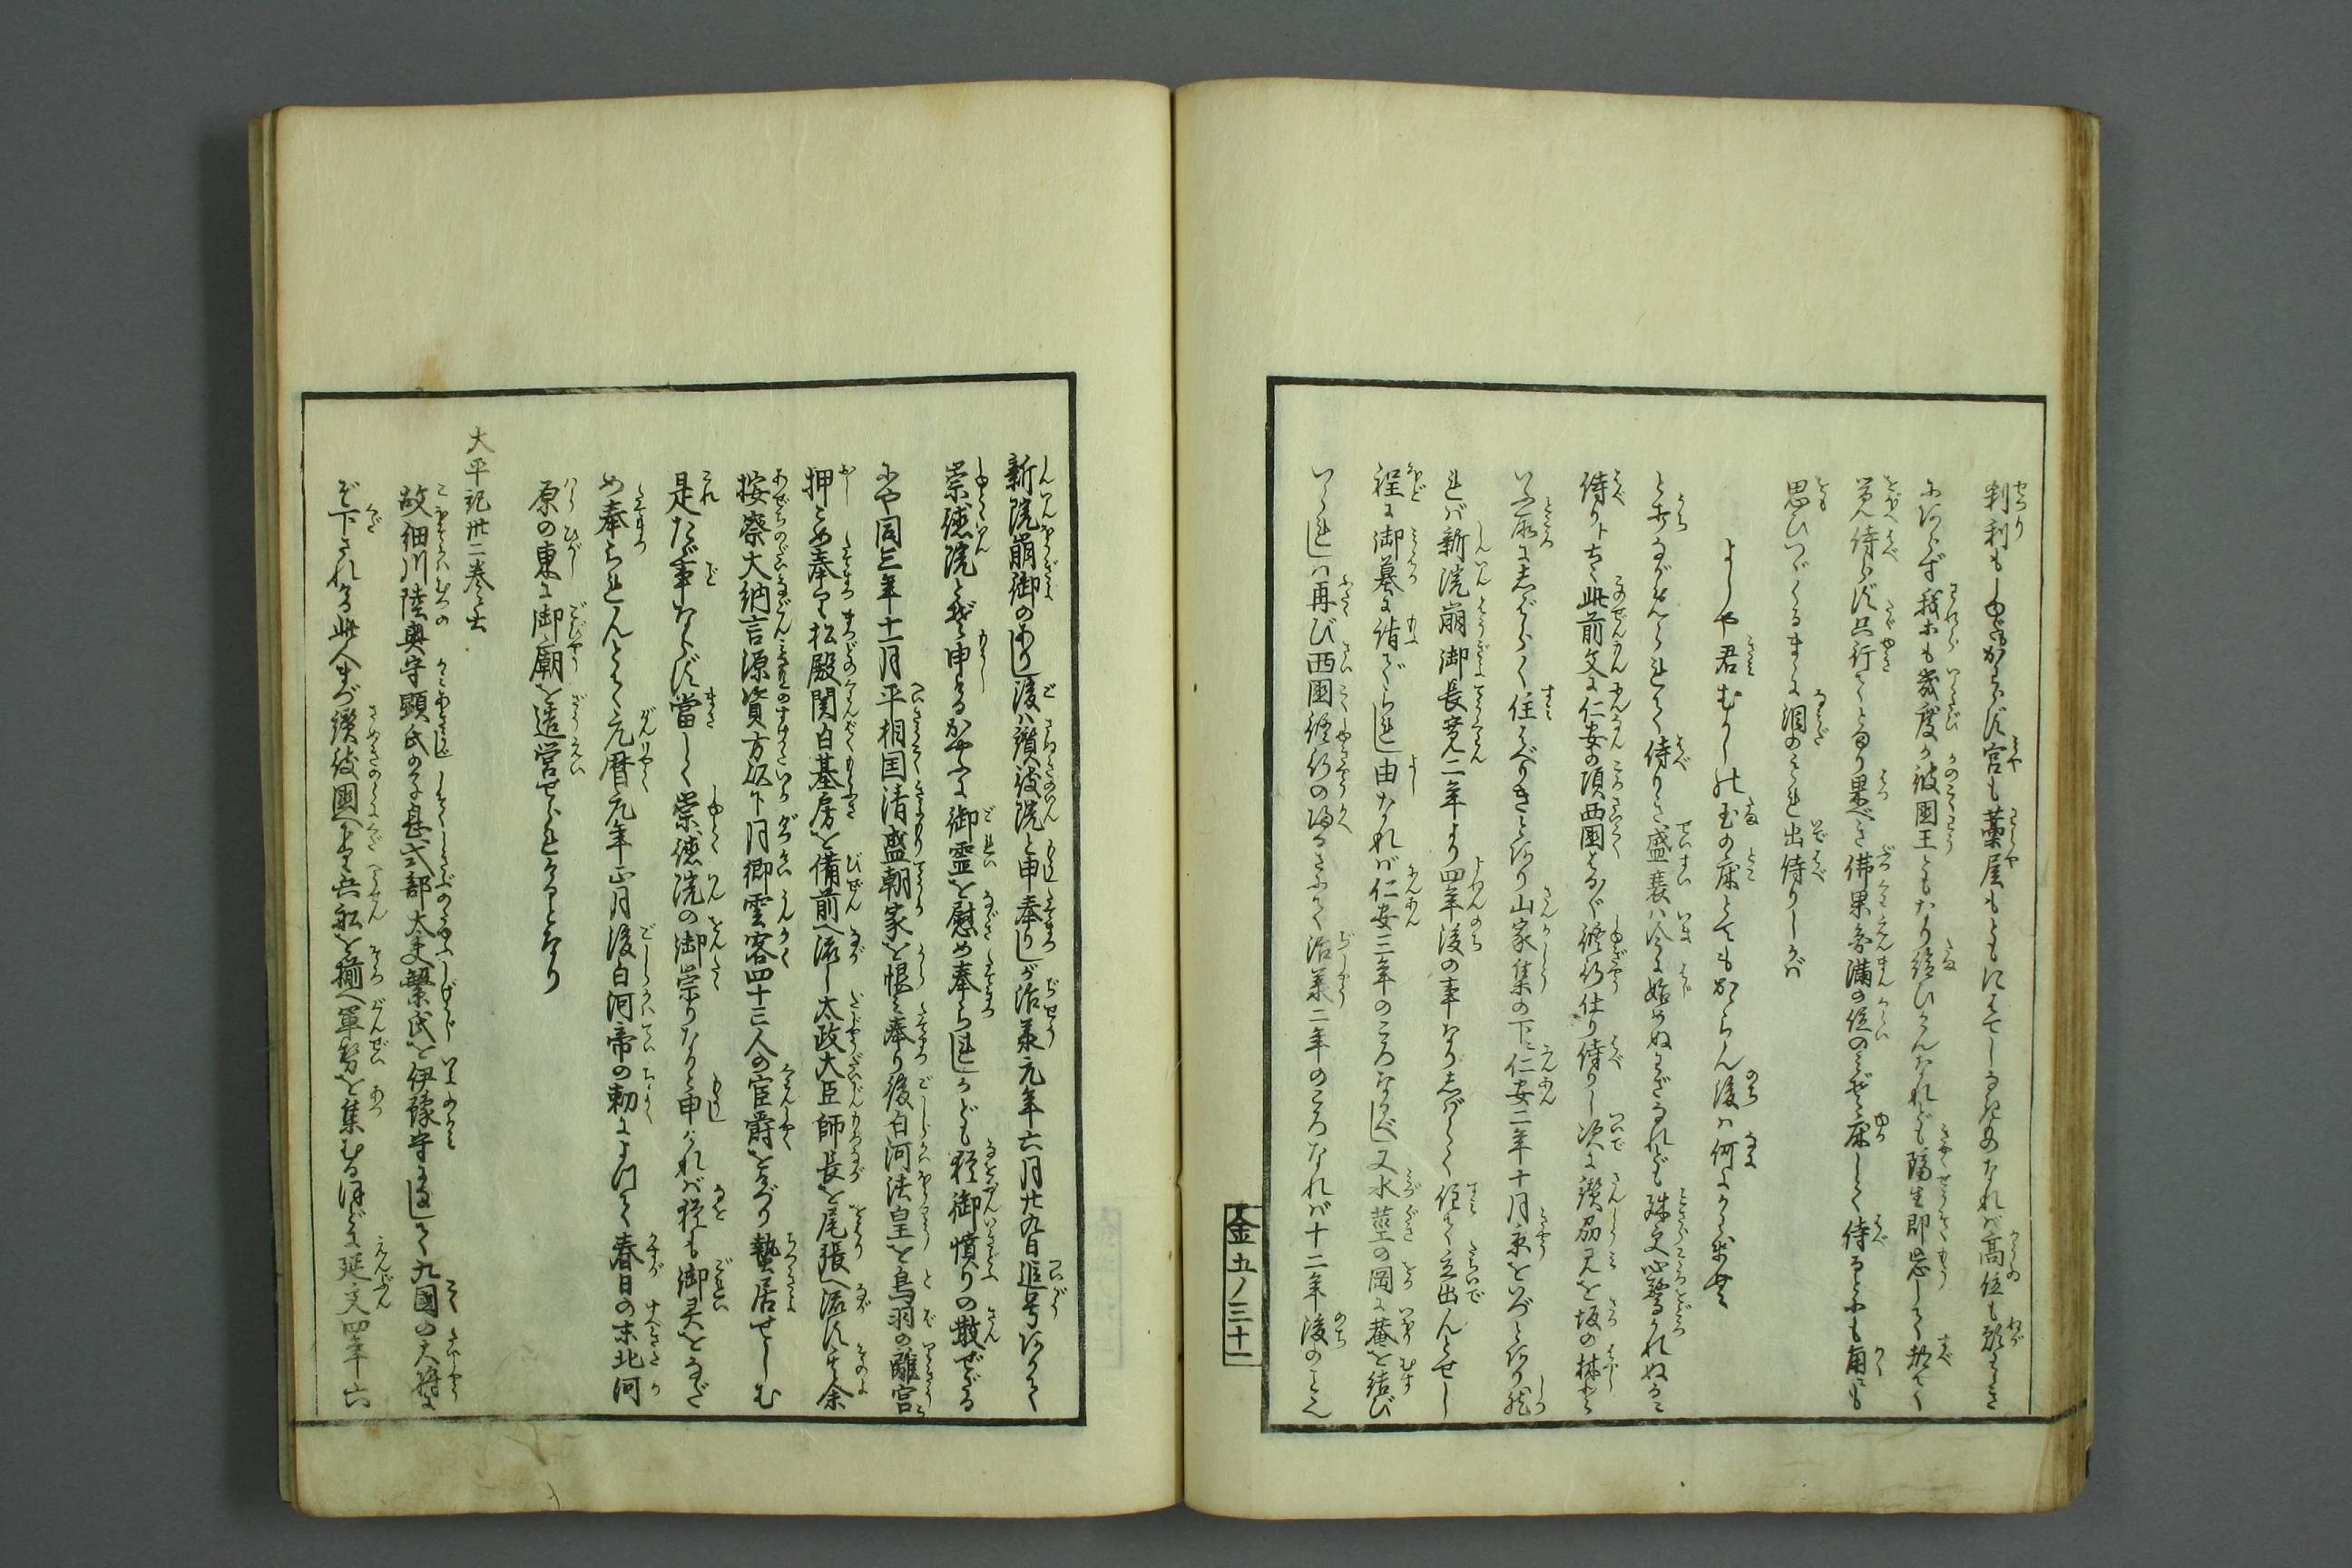 刹利もしゆだもかはらず宮も藁屋もともにはてしなきものなれば高位も願はしき
にあらず我等も幾度か彼國王ともなり給ひけんなれども隔生即忘して都て
覚侍らず只行てとまり果べき佛果円満の位のみぞ床しく侍るとにもかくにも
思ひつゞくるまゝに泪のみもれ出侍りしかば
よしや君むかしの玉の床とてもかゝらん後は何にかはせむ
とうちながめられて侍りき盛衰は今に始めぬわざなれども殊更心驚かれぬるに
侍り
此前文に仁安の頃西國はるばる修行仕り侍りし次に讃州見を坂の林と
いふ所にしばらく住はべりきとあり山家集の下に仁安二年十月京をいづとあり然
れば新院崩御長寛二年より四年後の事なりしばらく住て立出んとせし
程に御墓に詣でられし由なれば仁安三年のころなるべし又水茎の岡に菴を結び
いられしは再び西國修行の帰るさにて治承二年のころなれば十二年後のことなり
金五ノ三十一
新院崩御のありし後は讃岐院と申奉りしが治承元年六月廿九日追号ありて
崇徳院とぞ申けるかやうに御霊を慰め奉られしかども猶御憤りの散ぜざる
にや同三年十一月平相国清盛朝家を恨み奉り後白河法皇を鳥羽の離宮へ
押こめ奉り松殿関白基房を備前へ流し太政大臣師長を尾張へ流し其余
按察大納言源資方以下月卿雲客四十三人の官爵をけづり蟄居せしむ
是たゞ事ならず當しく崇徳院の御祟りなりと申ければ猶も御灵をなだ
め奉られんとて元暦元年正月後白河帝の勅によつて春日の末北河
原の東に御廟を造営せられけるとなり
大平記卅二巻に出
故細川陸奥守顕氏の子息式部大夫繁氏を伊豫守になして九國の大将に
ぞ下されける此人まづ讃岐國へ下り兵船を揃へ軍勢を集むるほどに延文四年六